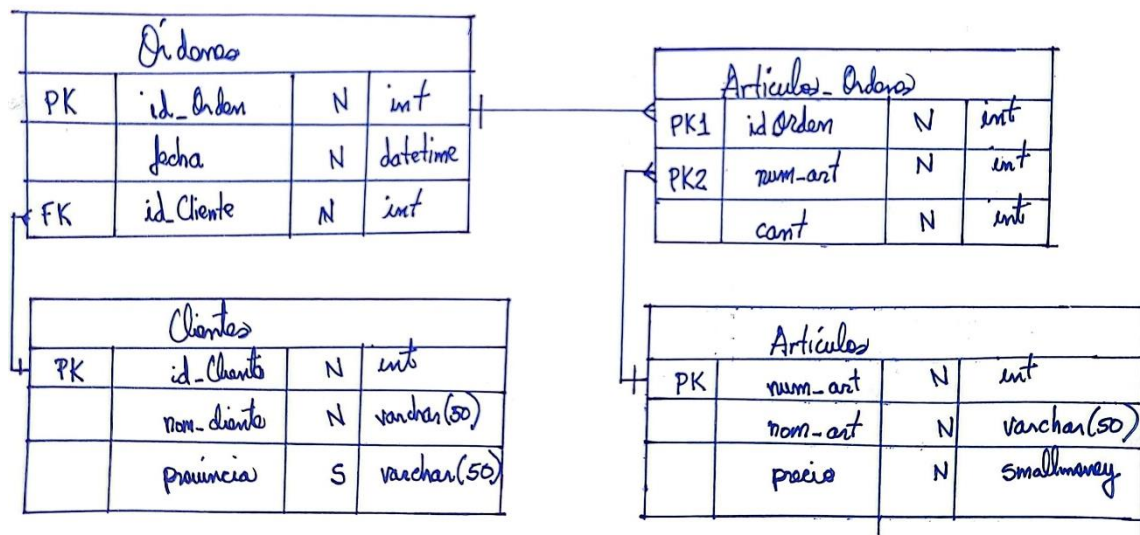 Órdenes
PK id_Orden N int
fecha N datetime
FK id_Cliente N int
Artículos_Ordenes
PK1 idOrden N int
PK2 num-art N int
cant N int
Clientes
PK id_Cliente N int
nom_cliente N varchar(50)
provincia S varchar(50)
Artículos
PK num_art N int
nom-art N varchar(50)
precio N smallmoney